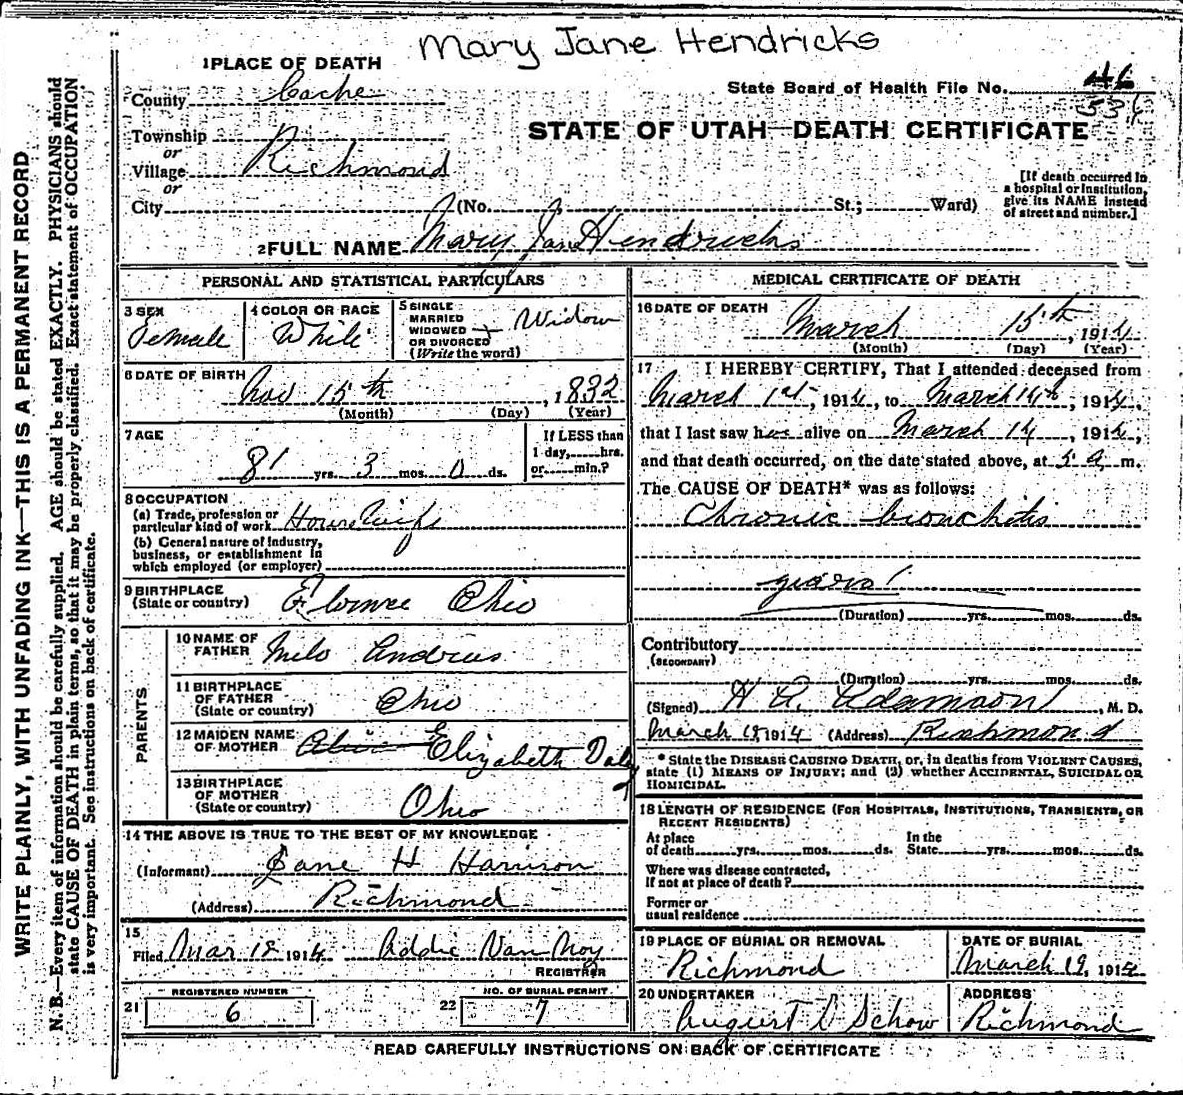 Mary Jane Hendricks
1 PLACE OF DEATH
State Board of Health File No.
County Cache
STATE OF UTAH—DEATH CERTIFICATE
Township
or
Village Richmond
or
City (No. St.; Ward)
[If death occurred in a hospital or institution, give its NAME instead of street and number.]
2 FULL NAME Mary Jane Hendricks
PERSONAL AND STATISTICAL PARTICULARS
3 SEX Female
4 COLOR OR RACE White
5 SINGLE MARRIED WIDOWED OR DIVORCED (Write the word) Widow
6 DATE OF BIRTH Nov 15th, 1832
(Month) (Day) (Year)
7 AGE
81 yrs. 3 mos. 0 ds.
If LESS than 1 day, hrs. or min.?
8 OCCUPATION
(a) Trade, profession or particular kind of work Housewife
(b) General nature of industry, business, or establishment in which employed (or employer)
9 BIRTHPLACE
(State or country) Florence Ohio
PARENTS
10 NAME OF FATHER Milo Andrus
11 BIRTHPLACE OF FATHER (State or country) Ohio
12 MAIDEN NAME OF MOTHER Elizabeth Daley
13 BIRTHPLACE OF MOTHER (State or country) Ohio
14 THE ABOVE IS TRUE TO THE BEST OF MY KNOWLEDGE
(Informant) Jane H Harrison
(Address) Richmond
15
Filed Mar 18 1914 Addie Van Noy
REGISTRAR
21 REGISTERED NUMBER 6
22 NO. OF BURIAL PERMIT 7
MEDICAL CERTIFICATE OF DEATH
16 DATE OF DEATH March 15th, 1914
(Month) (Day) (Year)
17 I HEREBY CERTIFY, That I attended deceased from
March 1st, 1914, to March 14th, 1914,
that I last saw her alive on March 14, 1914,
and that death occurred, on the date stated above, at 5 a m.
The CAUSE OF DEATH* was as follows:
Chronic bronchitis
years
(Duration) yrs. mos. ds.
Contributory
(SECONDARY)
(Duration) yrs. mos. ds.
(Signed) H A Adamson, M. D.
March 18 1914 (Address) Richmond
* State the DISEASE CAUSING DEATH, or, in deaths from VIOLENT CAUSES, state (1) MEANS OF INJURY; and (2) whether ACCIDENTAL, SUICIDAL OR HOMICIDAL.
18 LENGTH OF RESIDENCE (FOR HOSPITALS, INSTITUTIONS, TRANSIENTS, OR RECENT RESIDENTS)
At place of death yrs. mos. ds. In the State yrs. mos. ds.
Where was disease contracted, if not at place of death?
Former or usual residence
19 PLACE OF BURIAL OR REMOVAL Richmond
DATE OF BURIAL March 19, 1914
20 UNDERTAKER August D Schow
ADDRESS Richmond
READ CAREFULLY INSTRUCTIONS ON BACK OF CERTIFICATE
WRITE PLAINLY, WITH UNFADING INK—THIS IS A PERMANENT RECORD
N. B.—Every item of information should be carefully supplied. AGE should be stated EXACTLY. PHYSICIANS should
state CAUSE OF DEATH in plain terms, so that it may be properly classified. Exact statement of OCCUPATION
is very important. See instructions on back of certificate.